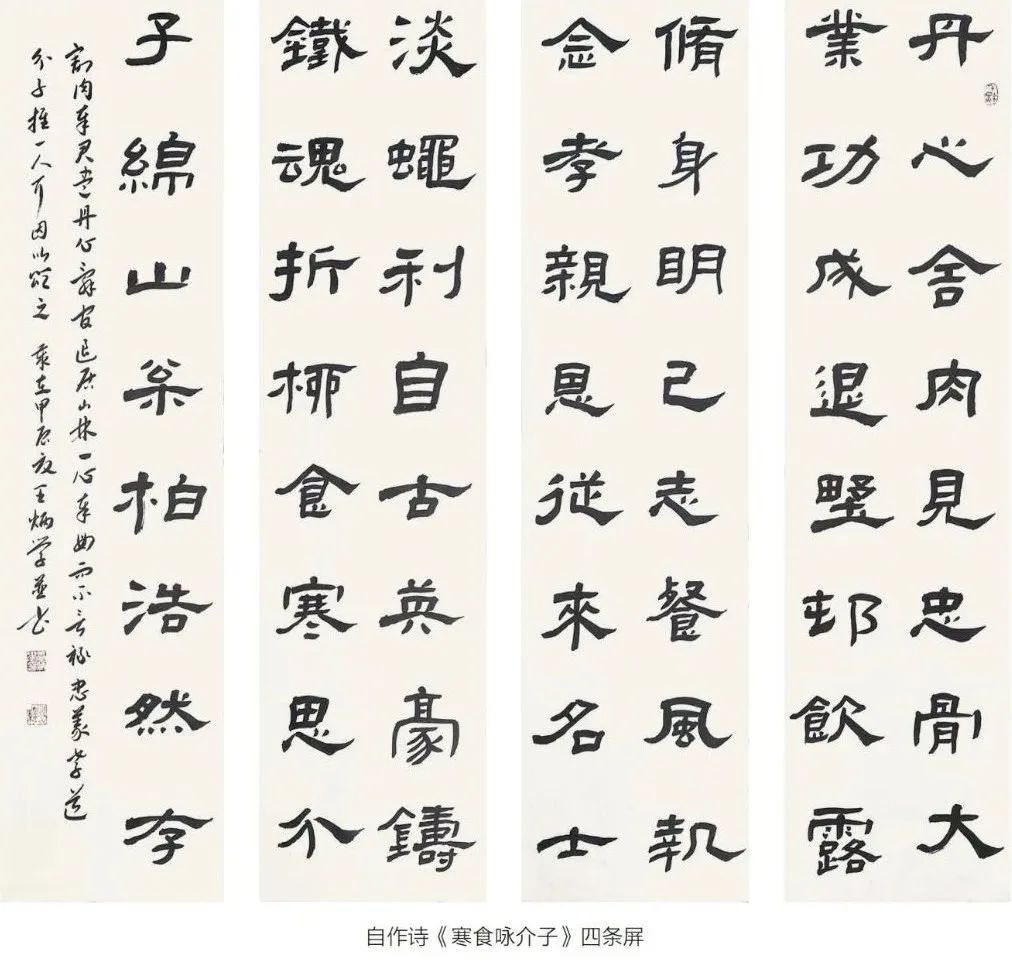 丹心舍肉見忠骨大
業功成退墅邨飲露
脩身明己志餐風執
念孝親恩從來名士
淡蠅利自古英豪鑄
鐵魂折柳食寒思介
子綿山枀柏浩然存
割肉奉君盡丹心辭官退居山林一心奉母而不言祿忠義孝道
介子推一人耳因以頌之 歲在甲辰夏王炳学並书
自作诗《寒食咏介子》四条屏